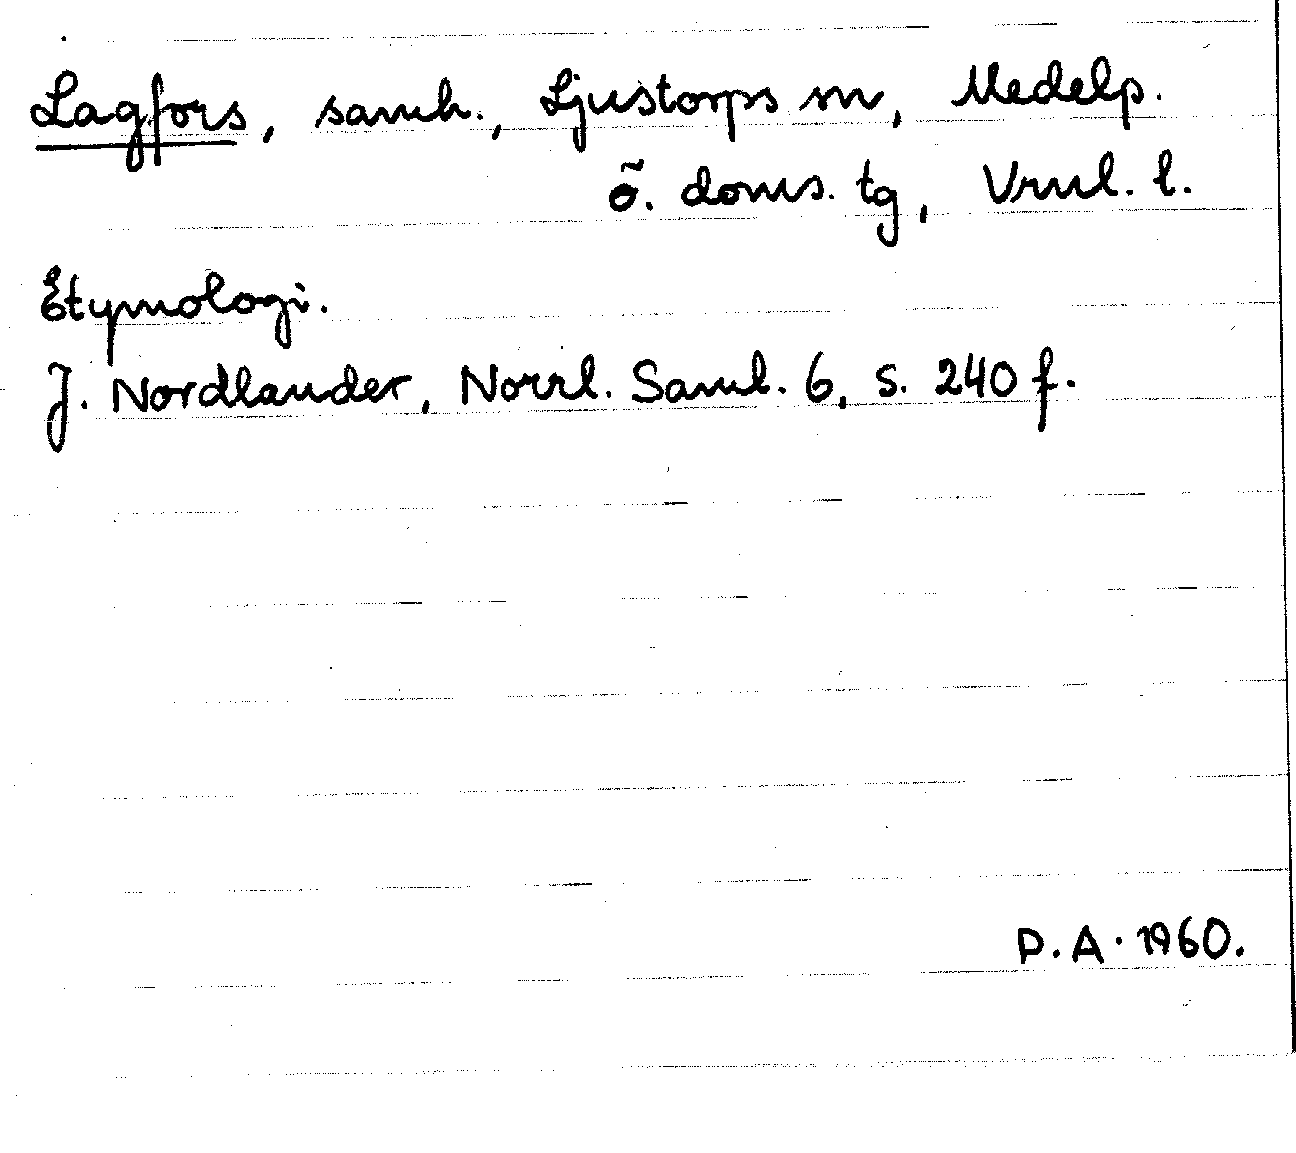 Lagfors, samh., Ljustorps sn, Medelp.
ö. doms. tg, Vrnl. l.
Etymologi.
J. Nordlander, Norrl. Saml. 6, s. 240 f.
P.A. 1960.